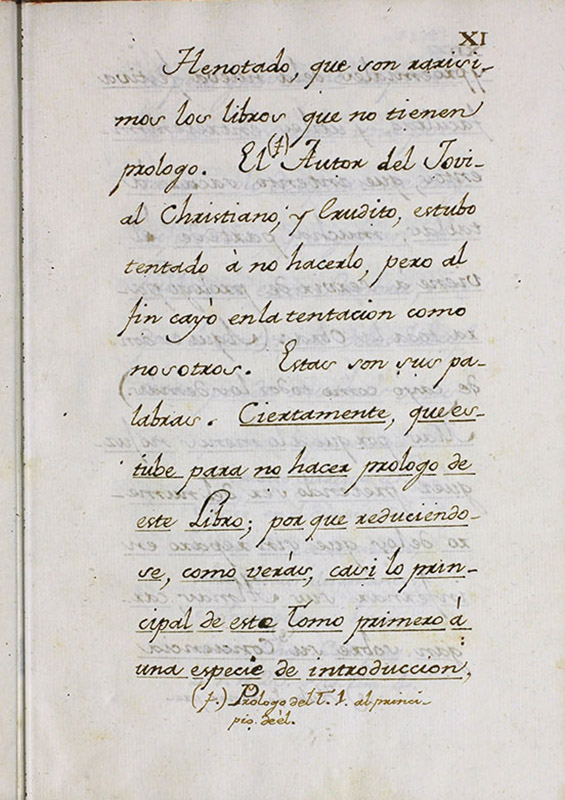 XI
Henotado, que son rarisi-
mos los libros que no tienen
prologo. El (†) Autor del Jovi-
al Christiano, y Erudito, estubo
tentado à no hacerlo, pero al
fin cayò en la tentacion como
nosotros. Estas son sus pa-
labras. Ciertamente, que es-
tube para no hacer prologo de
este Libro; por que reduciendo-
se, como veràs, casi lo prin-
cipal de este Tomo primero à
una especie de introduccion,
(†.) Prologo del T. 1. al princi-
pio de èl.